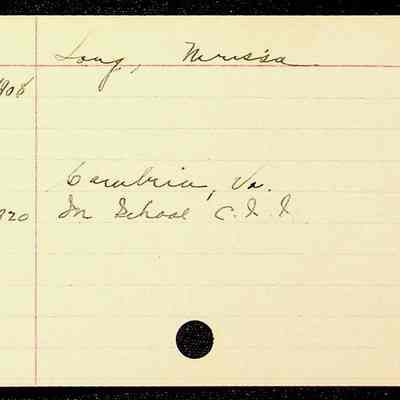 Long, Nerissa.
908
Cambria, Va.
920 In School C. I. I.